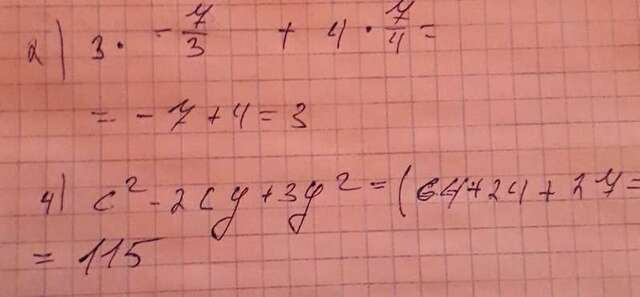 2) 3 · -7/3 + 4 · 7/4 =
= - 7 + 4 = 3
4) c² - 2cy + 3y² = (64 + 24 + 27 =
= 115